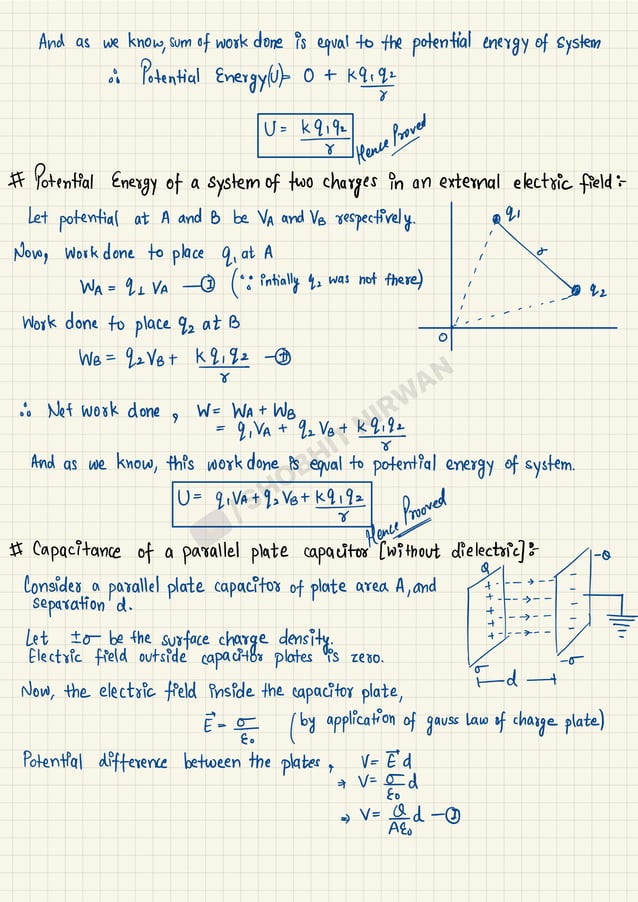 And as we know, sum of work done is equal to the potential energy of system
∴ Potential Energy(U)= 0 + kq₁q₂/r
U = kq₁q₂/r Hence Proved
# Potential Energy of a system of two charges in an external electric field:-
Let potential at A and B be VA and VB respectively.
q₁
Now, Work done to place q₁ at A
r
WA = q₁ VA —① (∵ intially q₂ was not there)
q₂
Work done to place q₂ at B
O
WB = q₂VB + kq₁q₂/r —②
∴ Net work done, W= WA + WB
= q₁VA + q₂VB + kq₁q₂/r
And as we know, this work done is equal to potential energy of system.
U = q₁VA + q₂VB + kq₁q₂/r Hence Prooved
/SHOBHIT NIRWAN
# Capacitance of a parallel plate capacitor [without dielectric]:-
Consider a parallel plate capacitor of plate area A, and
separation d.
Q -Q
+ + + + +
- - - - -
σ -σ
d
Let ±σ be the surface charge density.
Electric field outside capacitor plates is zero.
Now, the electric field inside the capacitor plate,
E⃗ = σ/ε₀ (by application of gauss law of charge plate)
Potential difference between the plates, V= E⃗d
⇒ V= σ/ε₀ d
⇒ V= Q/Aε₀ d —①